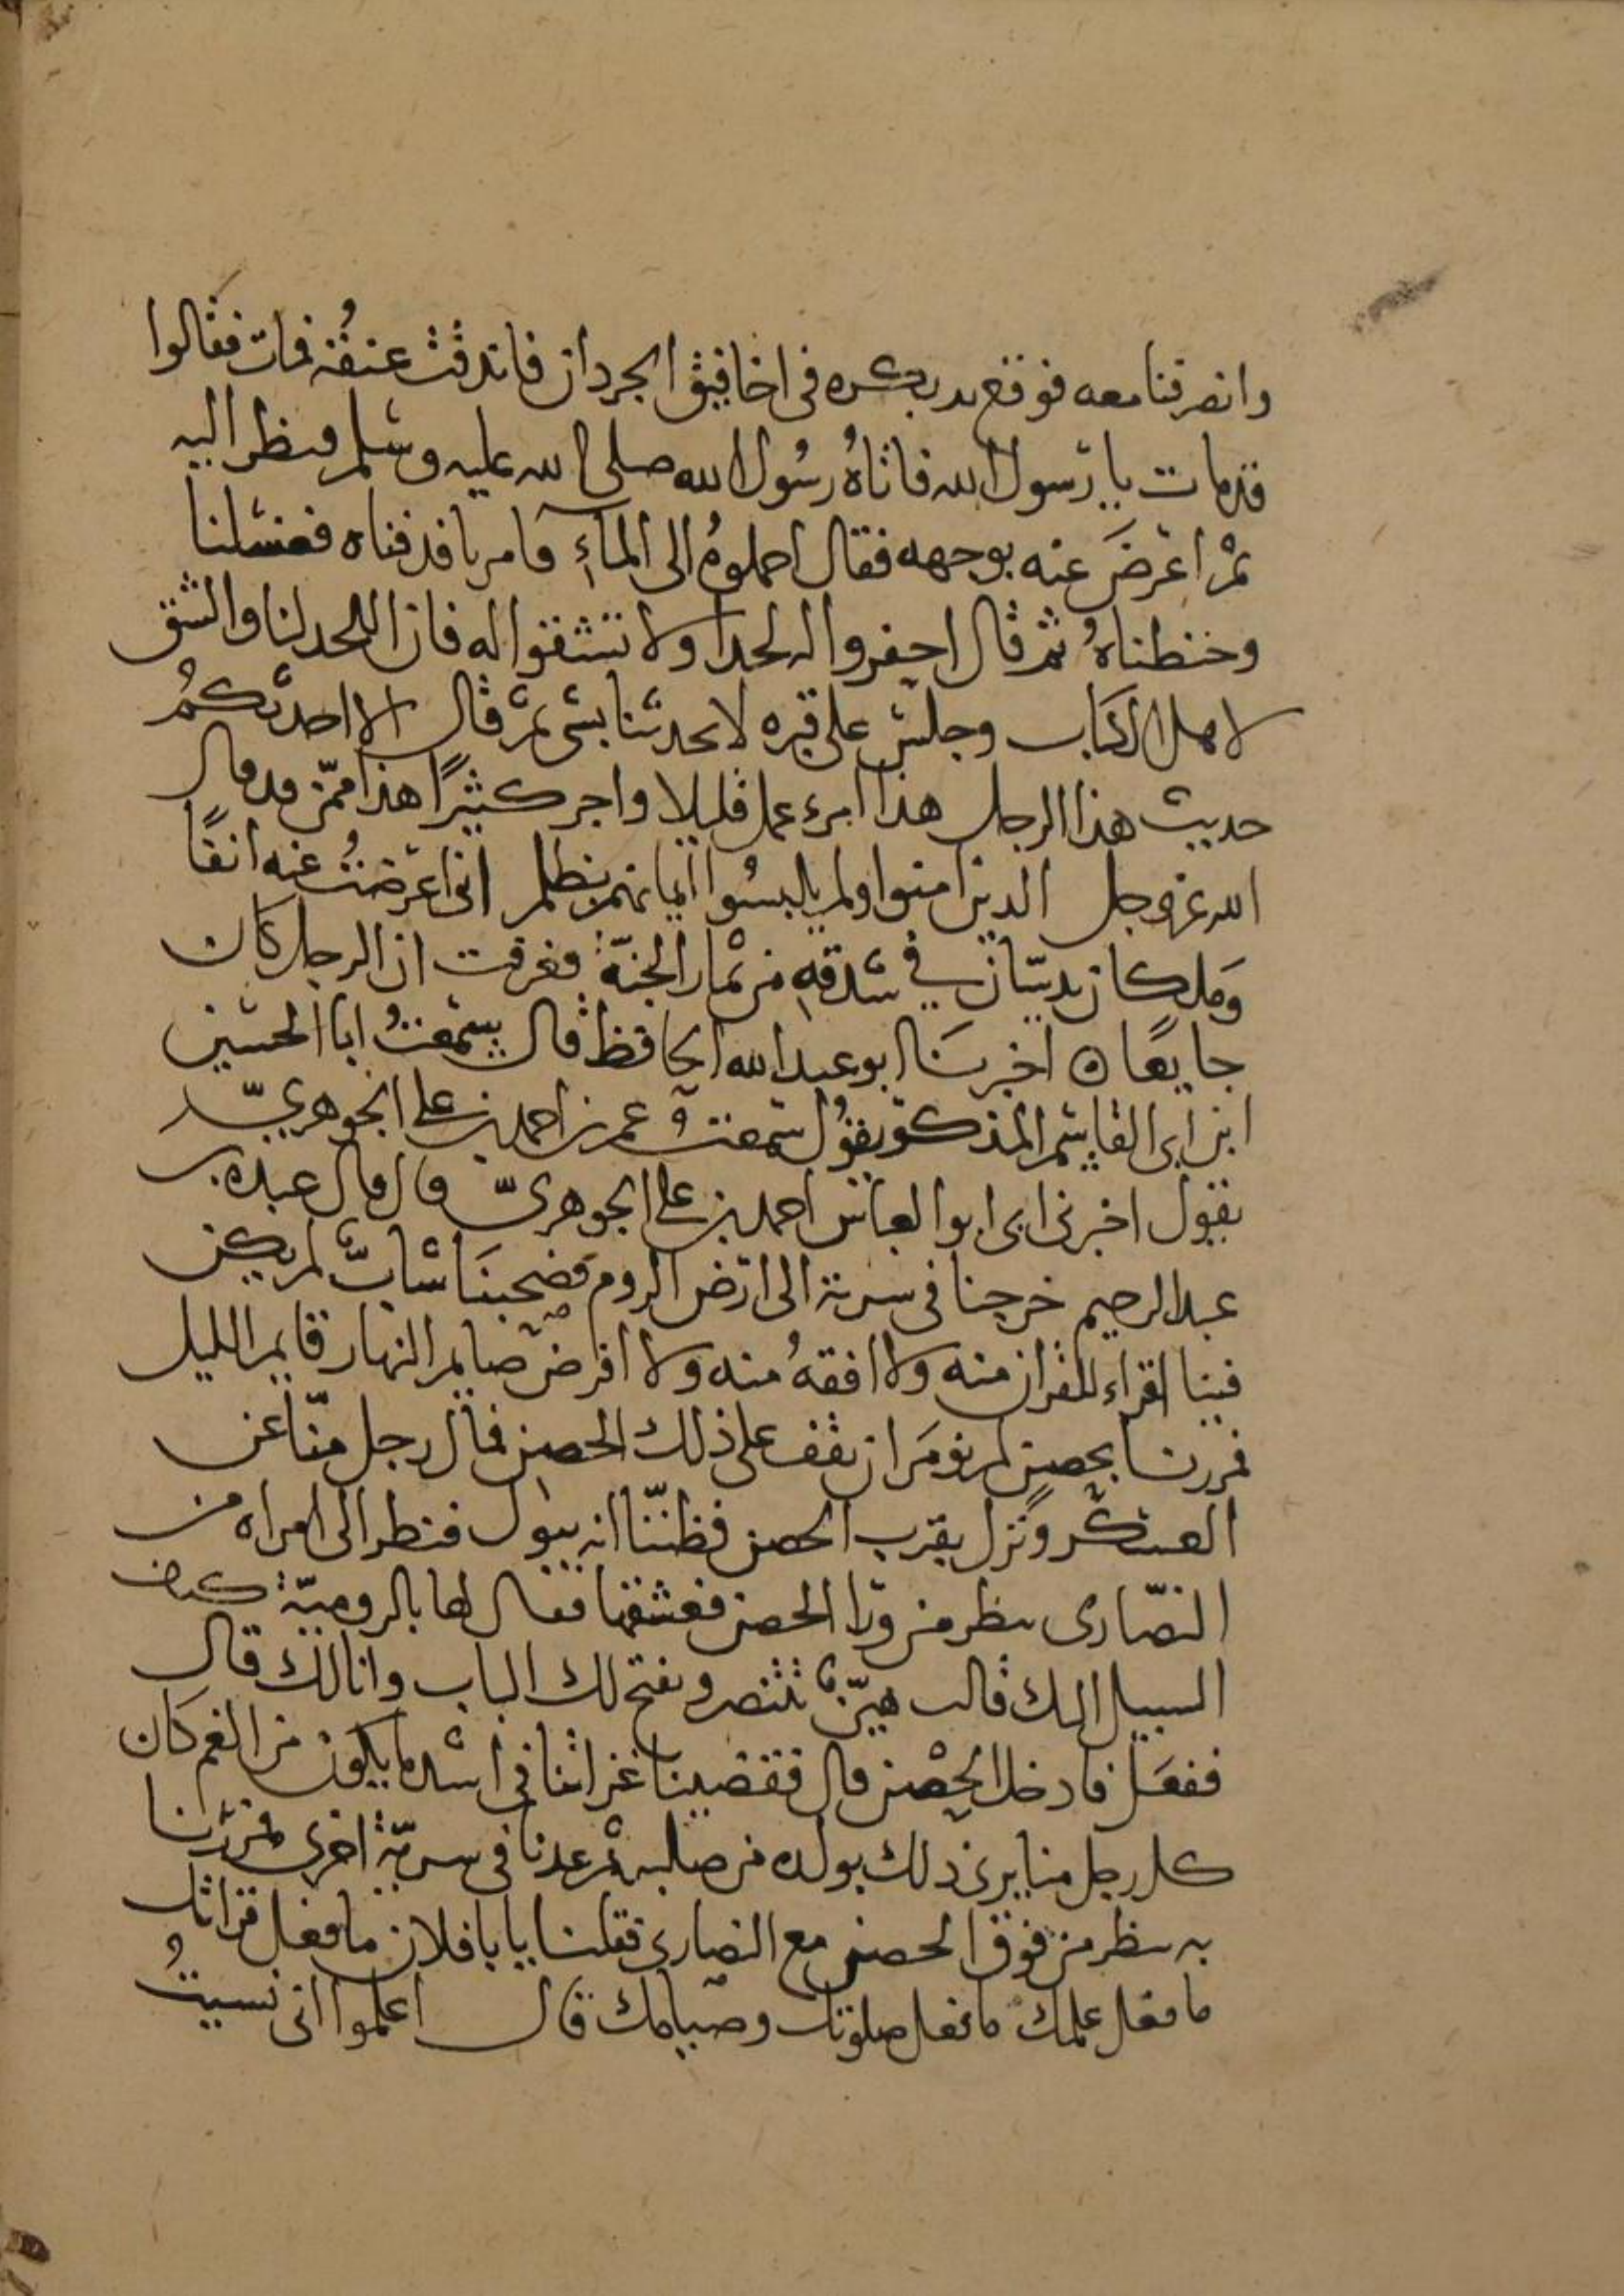 وانصرفنا معه فوقع يد بكره في اخافيق الجرذان فاندقت عنقه فمات فقالوا
قد مات يا رسول الله فاتاهُ رسُول الله صلى الله عليه وسلم فنظر اليه
ثم اعرضَ عنه بوجهه فقال احملوهُ الى الماءِ فامرنا فدفناه فغسلنا
وحنطناهُ ثم قال احفروا له لحدا ولا تشقوا له فان اللحد لنا والشق
لاهل الكتاب وجلس على قبره لا يحدثنا بشي ثم قال الا احدثكمُ
حديث هذا الرجل هذا امرء عمل قليلا واجر كثيرًا هذا ممّن قد قال
الله عز وجل الذين امنوا ولم يلبسُوا ايمانهم بظلم اني اعرضتُ عنه انفًا
وَملكان يدسّان في شدقهِ من ثمار الجنّة فعرفت ان الرجل كان
جايعًا ه اخبرنَا ابو عبد الله الحافظ قال سمعتُ ابا الحسين
ابن ابي القاسم المذكر يقوُل سمعت عمر بن احمد بن علي الجوهريّ
يقول اخبرني ابي ابو العباس احمد بن علي الجوهريّ قال قال عبده بن
عبد الرحيم خرجنا في سرية الى ارض الروم فصحبنَا شابّ لم يكن
فينا اقراء للقران منه ولا افقهُ منه ولا افرض صايم النهار قايم الليل
فمررنا بحصن لم نؤمَر ان نقف على ذلك الحصن فمال رجل منّا عن
العسكر ونزل بقرب الحصن فظننّا انه يبول فنظر الى امراه من
النصّارى ينظر من ورا الحصن فعشقها فقال لها بالروميّة كيف
السبيل اليك قالت هيّنٌ تتنصر ونفتح لك الباب وانا لك قال
ففعَل فادخل الحِصْن قال فقضينا غزاتنا في اشد ما يكون من الغم كان
كل رجل منا يرى ذلك بولده من صلبه ثم عدنا في سريّة اخرى فمررنا
به ينظر من فوق الحصن مع النصارى فقلنا يا با فلان ما فعل قراتك
ما فعل علمك ما فعل صلوتك وصيامك قال اعلموا اني نسيتُ